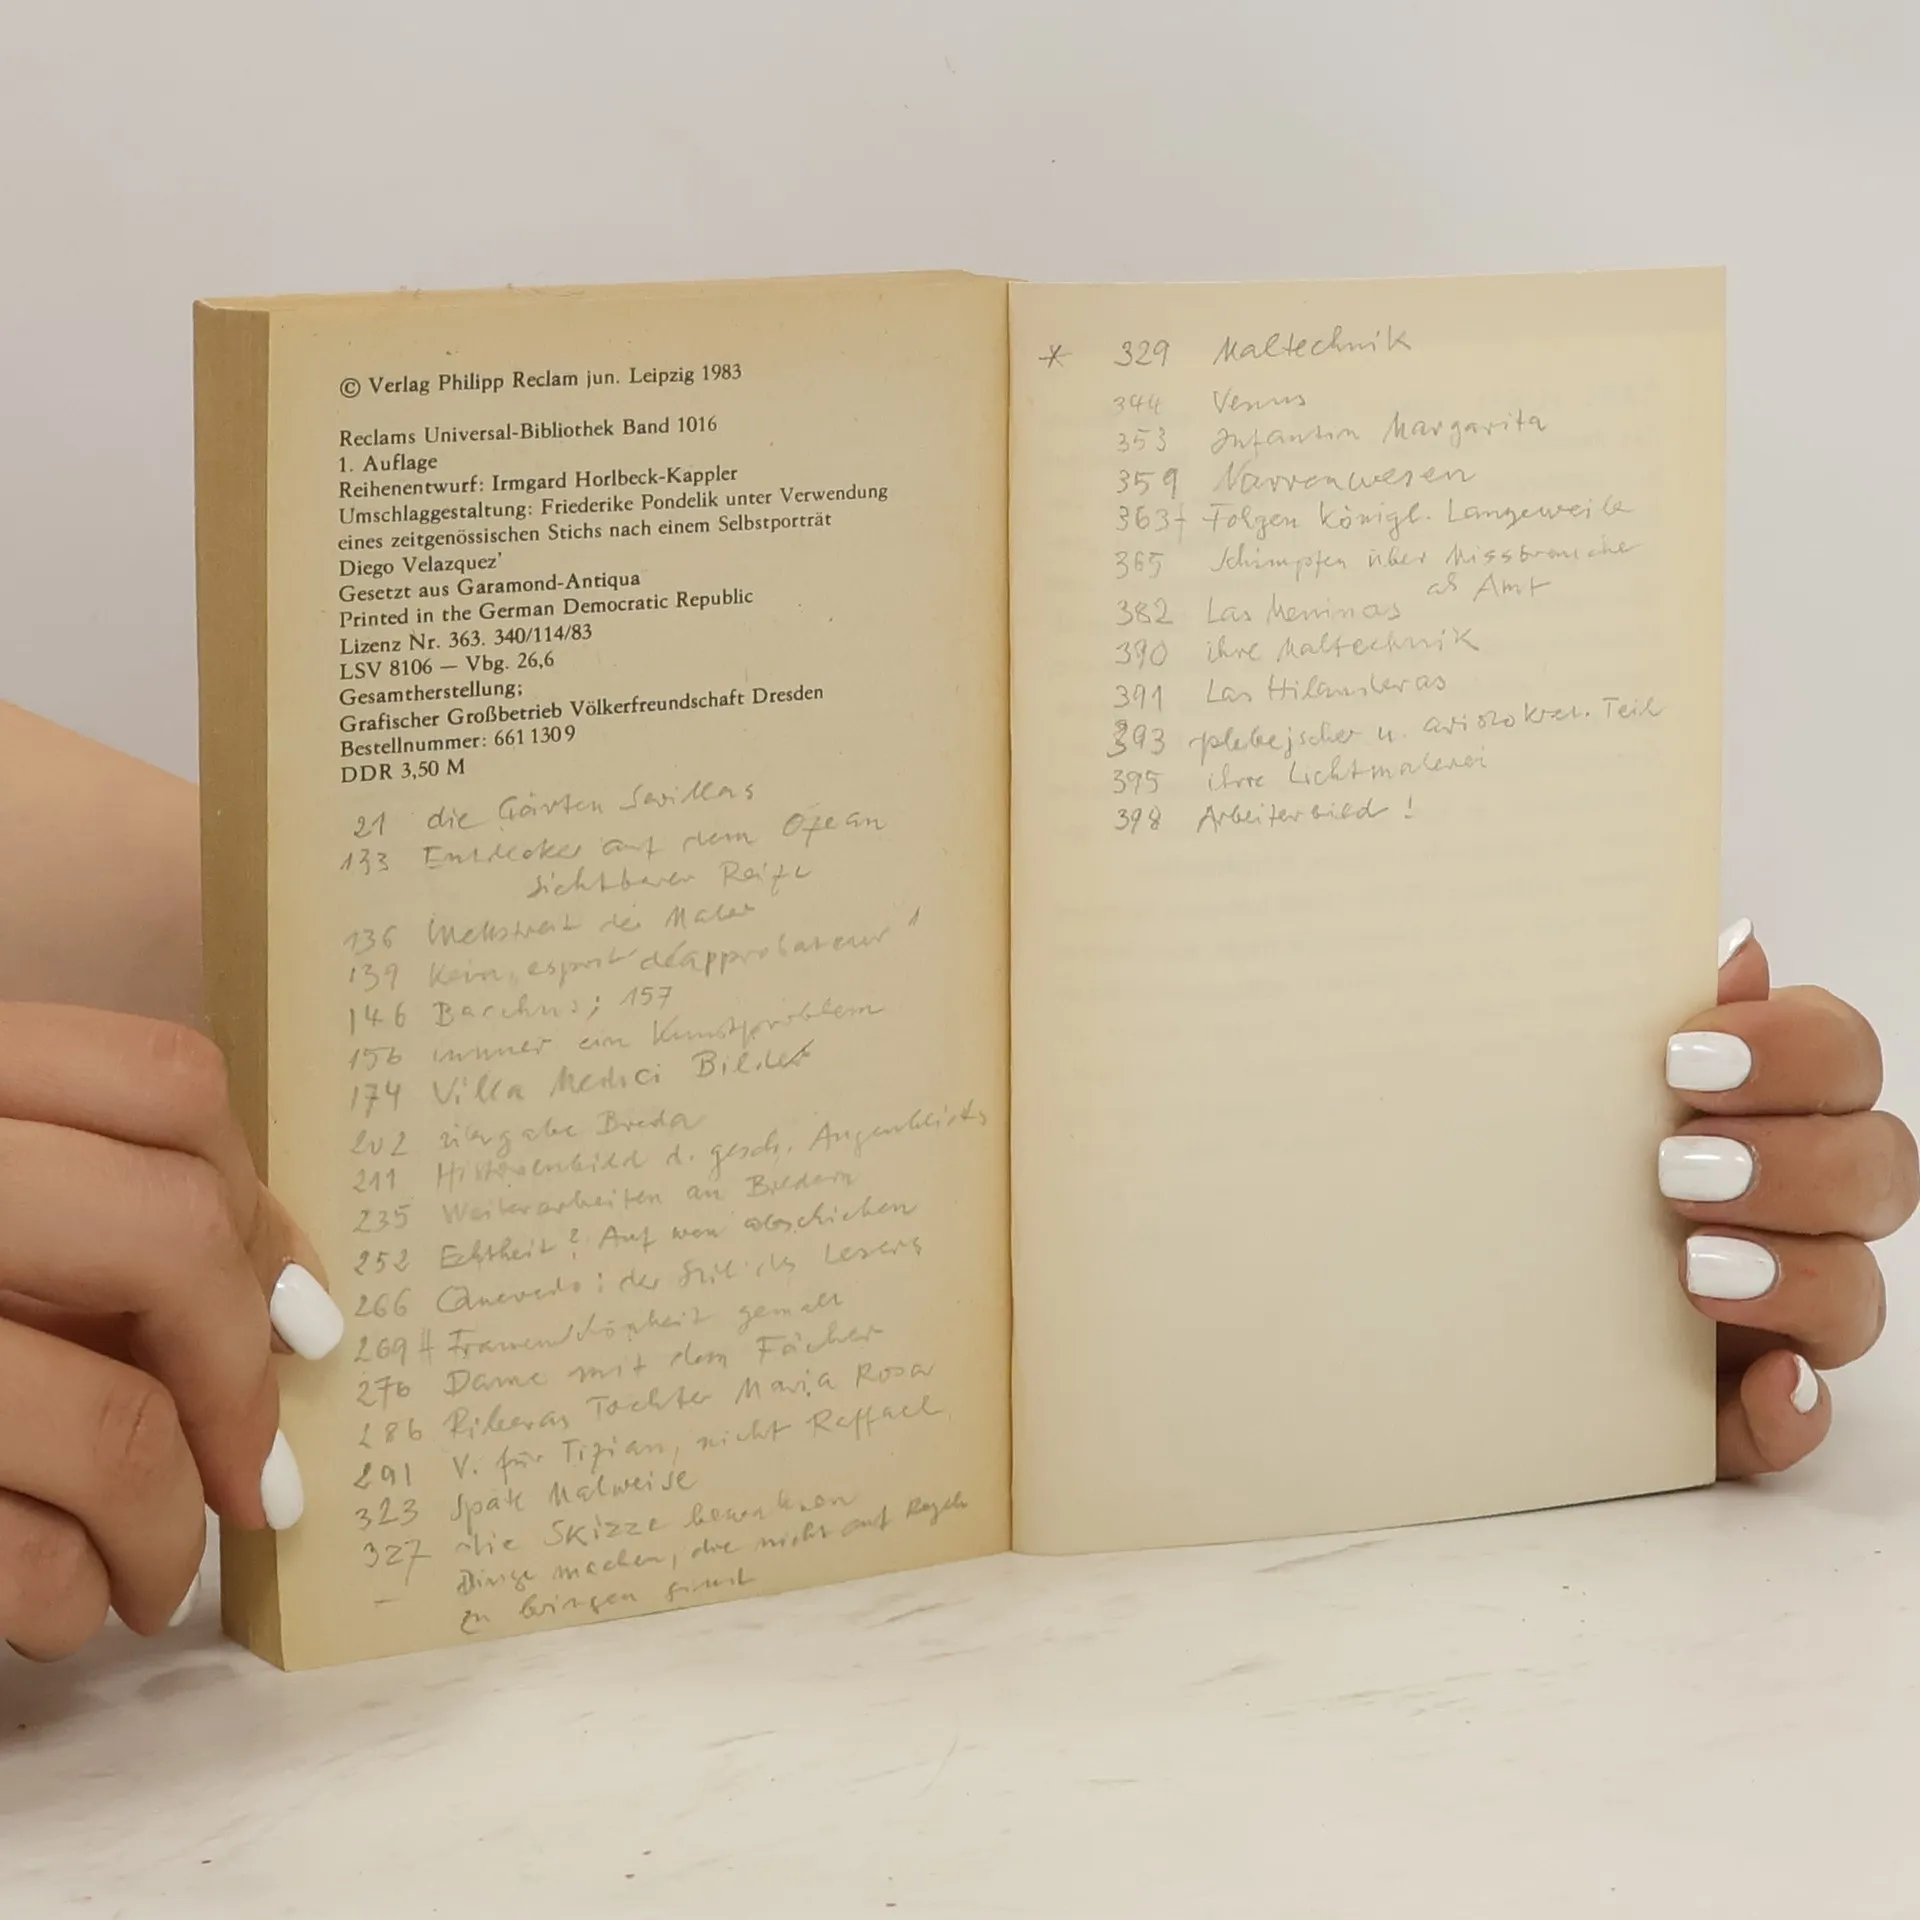 © Verlag Philipp Reclam jun. Leipzig 1983
Reclams Universal-Bibliothek Band 1016
1. Auflage
Reihenentwurf: Irmgard Horlbeck-Kappler
Umschlaggestaltung: Friederike Pondelik unter Verwendung
eines zeitgenössischen Stichs nach einem Selbstporträt
Diego Velazquez'
Gesetzt aus Garamond-Antiqua
Printed in the German Democratic Republic
Lizenz Nr. 363. 340/114/83
LSV 8106 — Vbg. 26,6
Gesamtherstellung;
Grafischer Großbetrieb Völkerfreundschaft Dresden
Bestellnummer: 661 130 9
DDR 3,50 M
21 die Gärten Sevillas
133 Entdecker auf dem Ozean
sichtbarer Reize
136 Wettstreit der Maler
139 Kein „esprit désapprobateur"
146 Bacchus; 157
156 immer ein Kunstproblem
174 Villa Medici Bilder
202 Übergabe Breda
211 Historienbild d. gesch. Augenblicks
235 Weiterarbeiten an Bildern
252 Echtheit? Auf abschieben
266 Quevedo: der Stil des Lesers
269 Frauenschönheit gemalt
276 Dame mit dem Fächer
286 Riberas Tochter Maria Rosa
291 V. für Tizian, nicht Raffael
323 Späte Malweise
327 die Skizze bewahren
– Dinge machen, die nicht auf Regeln
zu bringen sind
* 329 Maltechnik
344 Venus
353 Infantin Margarita
359 Narrenwesen
363f Folgen königl. Langeweile
365 Schimpfen über Missbräuche
als Amt
382 Las Meninas
390 ihre Maltechnik
391 Las Hilanderas
393 plebejischer u. aristokrat. Teil
395 ihre Lichtmalerei
398 Arbeiterbild!